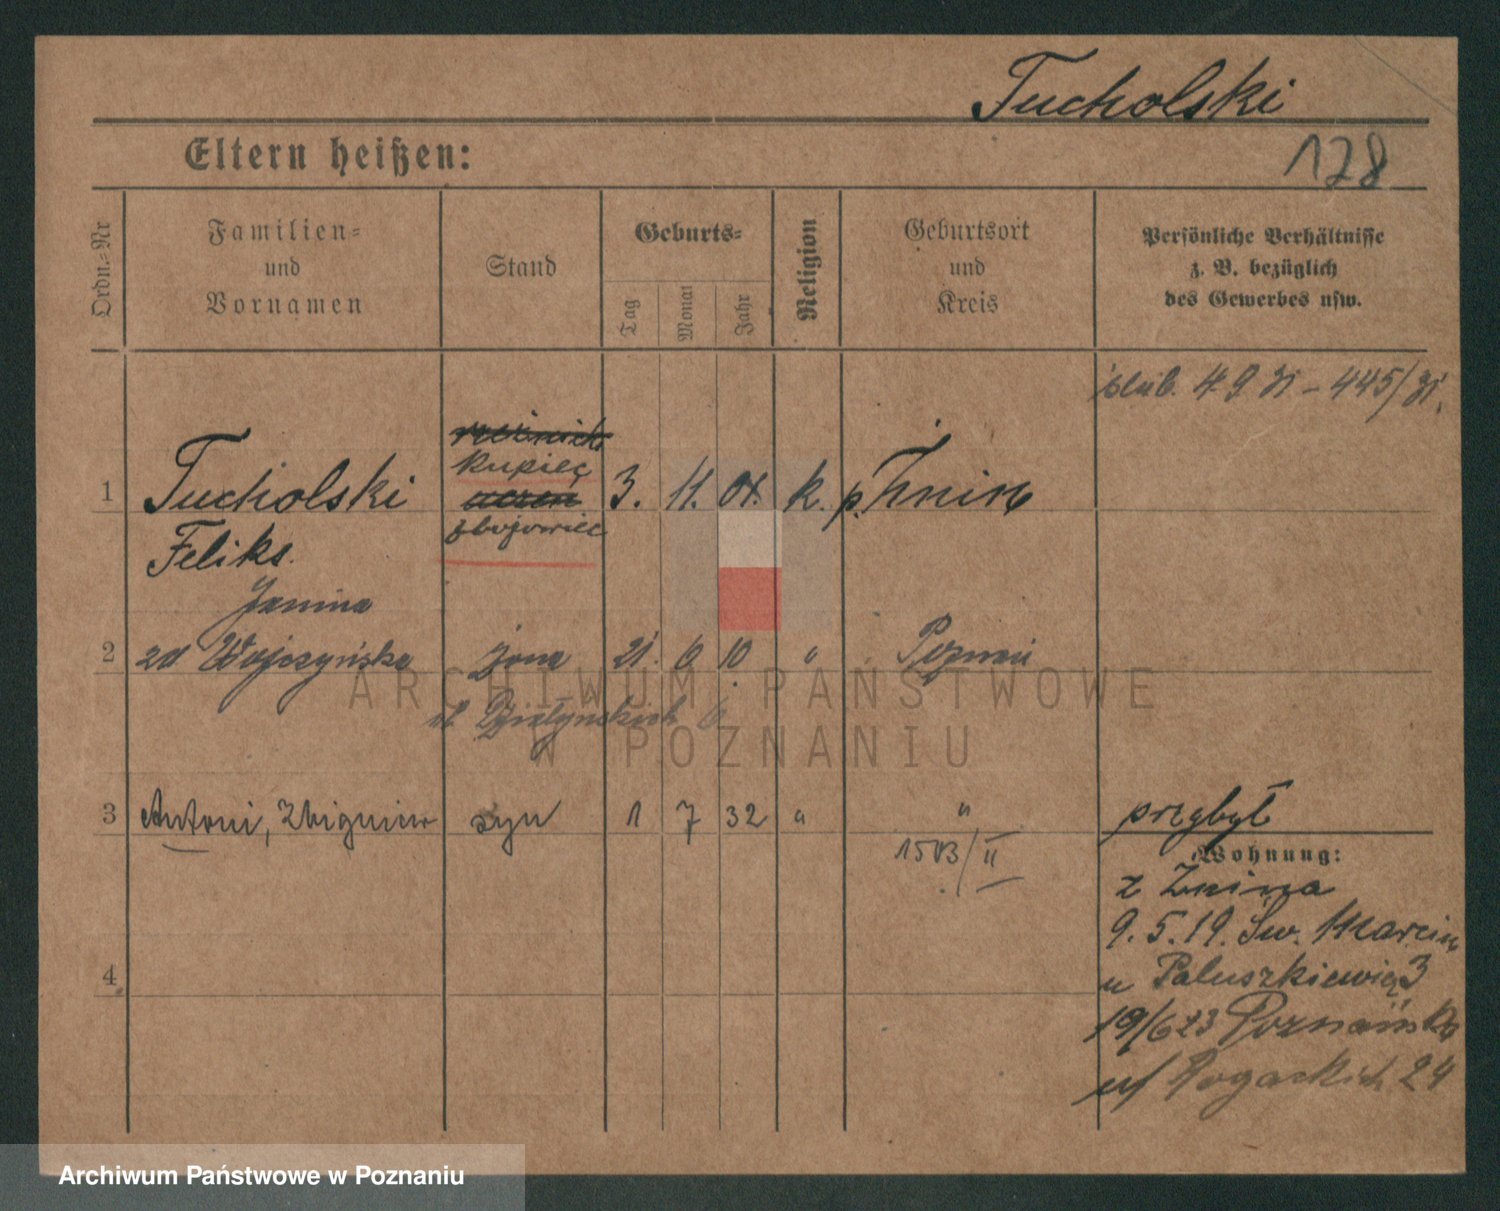 Tucholski
Eltern heißen:
178
Ordn.=Nr
Familien=
und
Vornamen
Stand
Geburts=
Tag
Monat
Jahr
Religion
Geburtsort
und
Kreis
Persönliche Verhältnisse
z. B. bezüglich
des Gewerbes usw.
ślub. 4.9 31 - 445/31.
kupiec
1 Tucholski 3. 11. 01. k. p. Żnin
Feliks.
Janina
2 zd Wojczyńska żona 21. 6 10 " Poznań
3 Antoni, Zbigniew syn 1 7 32 " "
przybył
Wohnung:
1503/II
z Żnina
9.5.19. Św. Marcin
4 u Paluszkiewicz 3
19/6 23 Poznańska
u/ Rogackich 24
ARCHIWUM PAŃSTWOWE
W POZNANIU
Archiwum Państwowe w Poznaniu